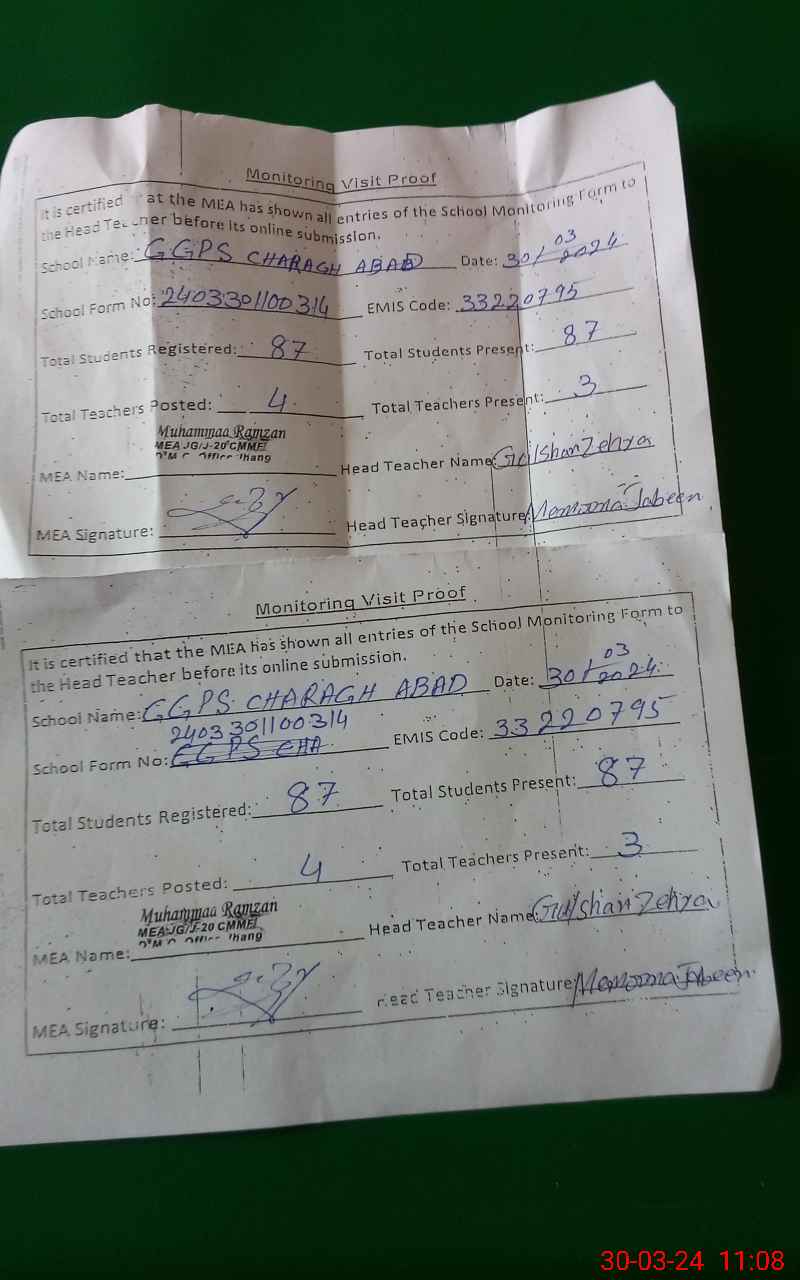 Monitoring Visit Proof
It is certified that the MEA has shown all entries of the School Monitoring Form to
the Head Teacher before its online submission.
School Name: GGPS CHARAGH ABAD Date: 30/03/2024
School Form No: 2403301100314 EMIS Code: 33220795
Total Students Registered: 87 Total Students Present: 87
Total Teachers Posted: 4 Total Teachers Present: 3
Muhammaa Ramzan
MEA JG/J-20 CMMEI
MEA Name: Head Teacher Name: Gulshan Zehra
MEA Signature: Head Teacher Signature: Memoona Jabeen
Monitoring Visit Proof
It is certified that the MEA has shown all entries of the School Monitoring Form to
the Head Teacher before its online submission.
School Name: GGPS CHARAGH ABAD Date: 30/03/2024
2403301100314
School Form No: GGPS CHA EMIS Code: 33220795
Total Students Registered: 87 Total Students Present: 87
Total Teachers Posted: 4 Total Teachers Present: 3
Muhammaa Ramzan
MEA JG/J-20 CMMEI
MEA Name: Head Teacher Name: Gulshan Zehra
MEA Signature: Head Teacher Signature: Memoona Jabeen
30-03-24 11:08